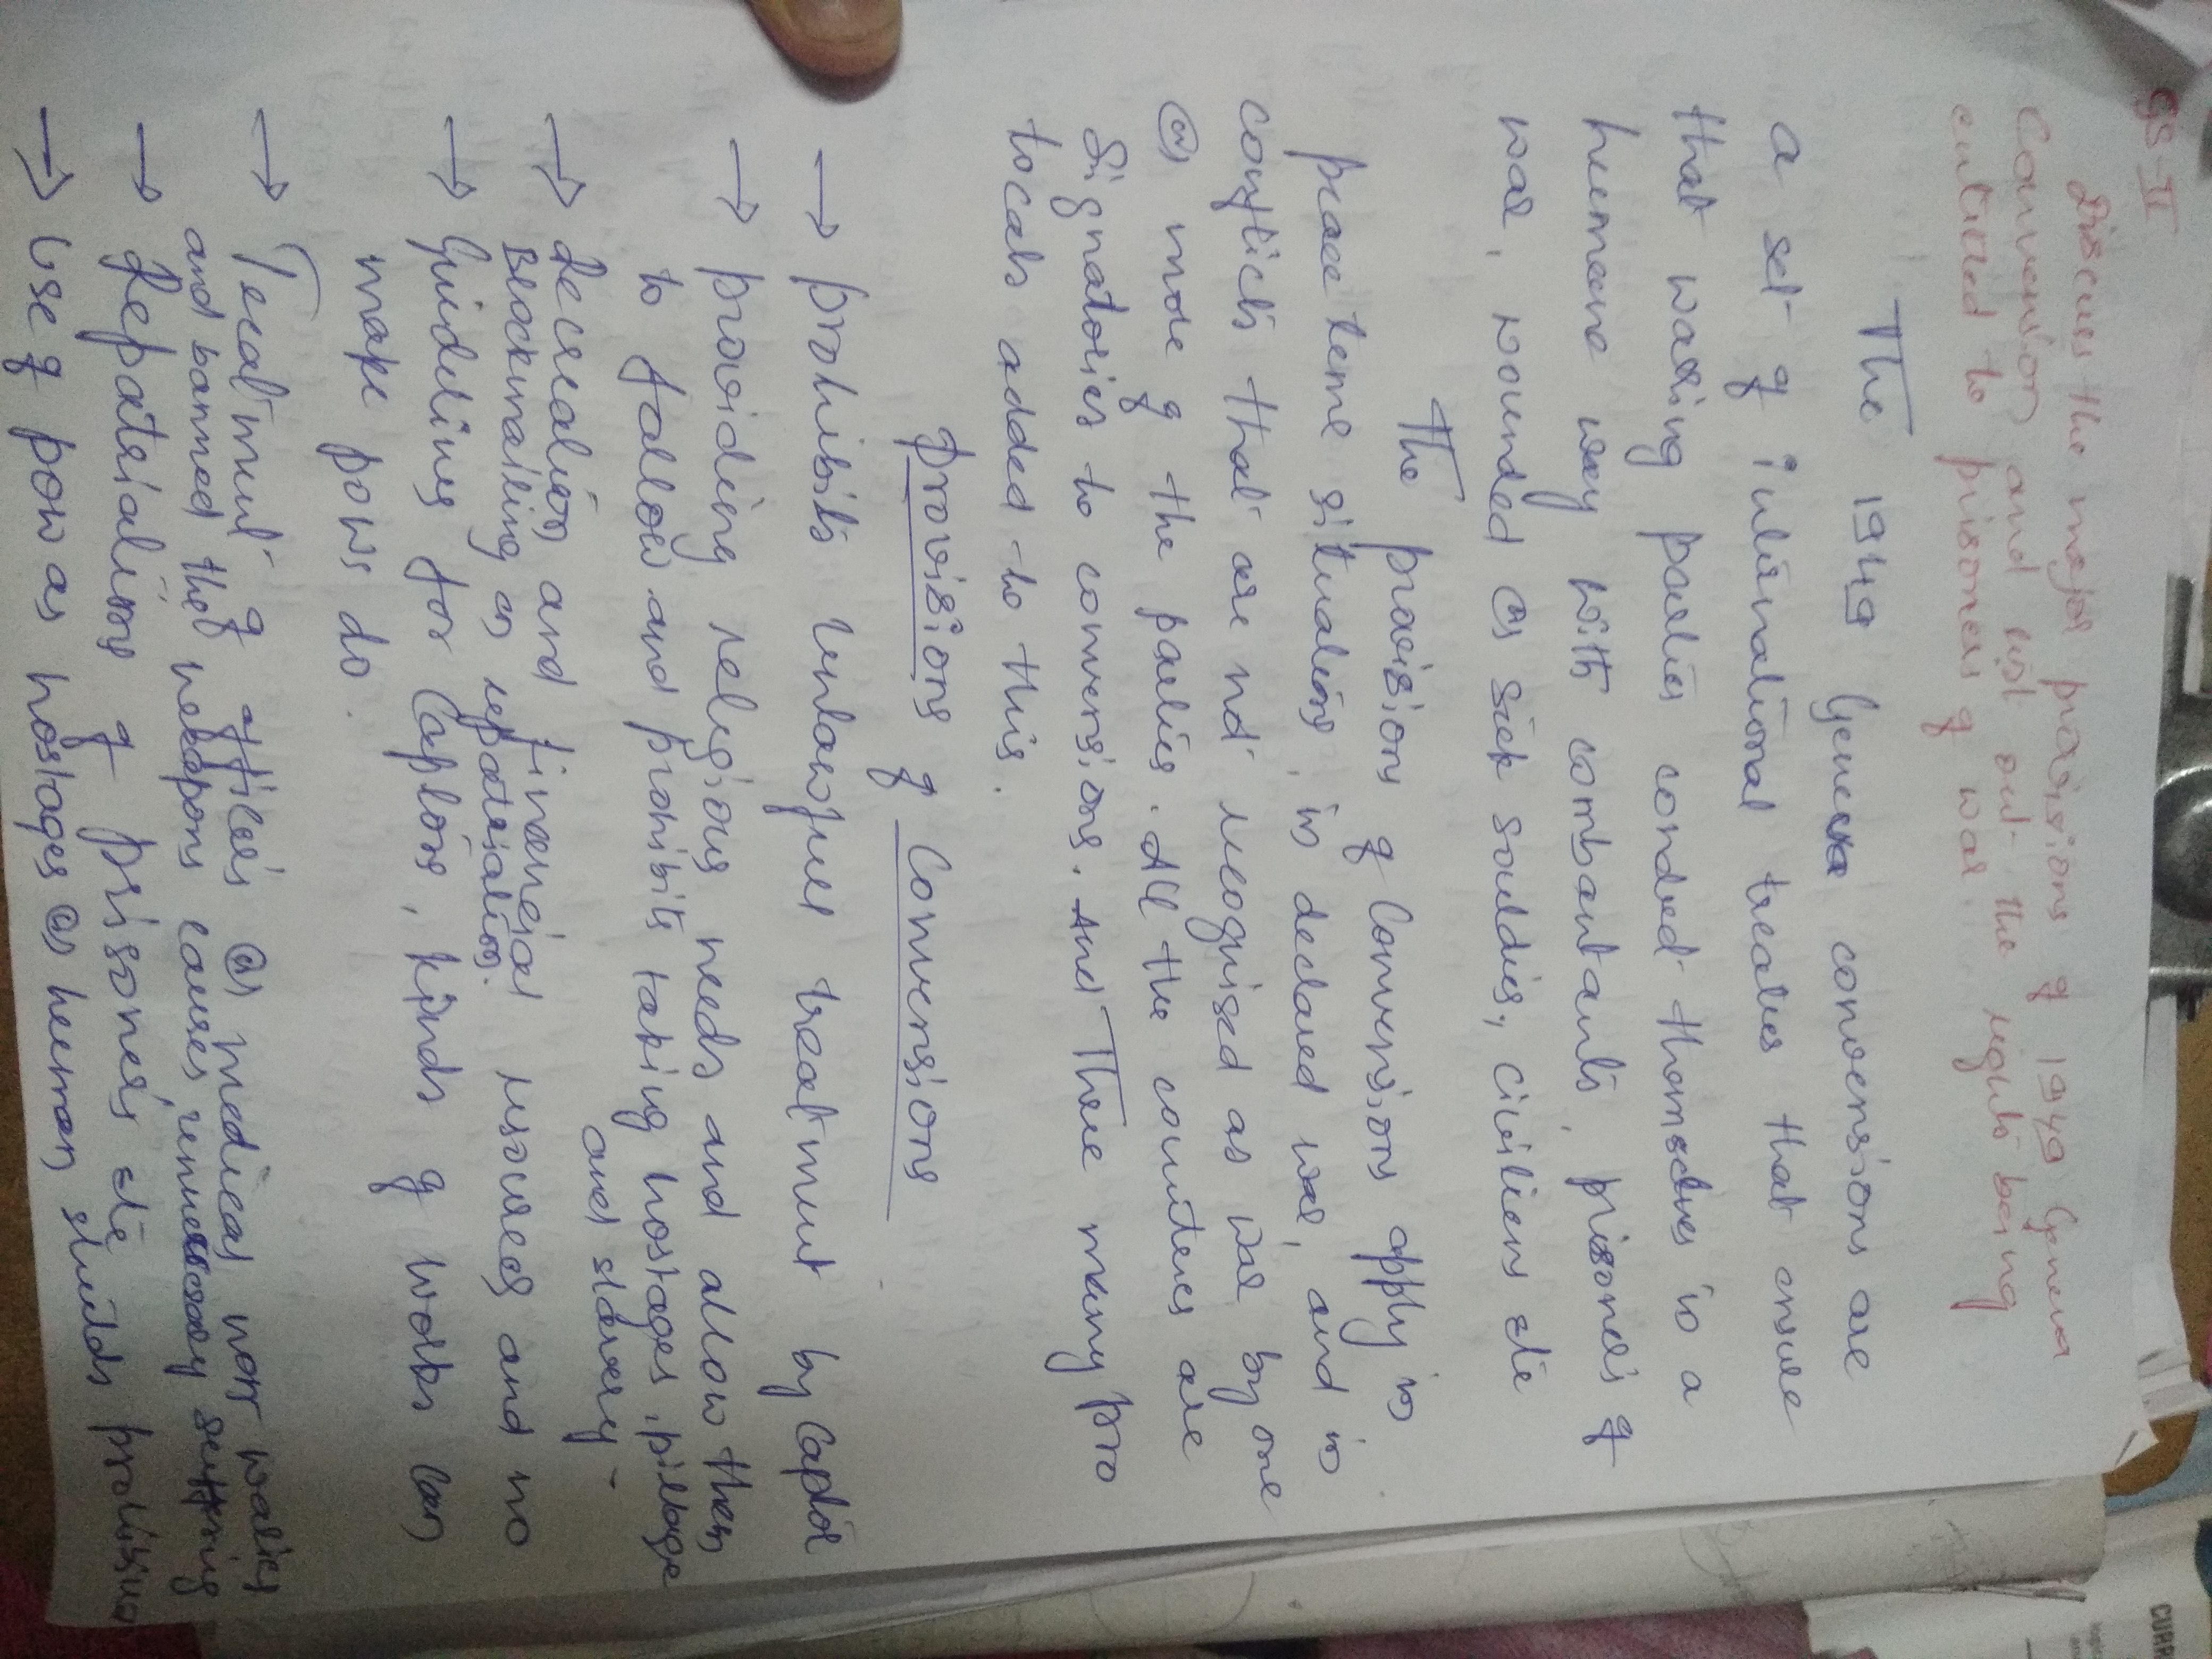 GS-II
Discuss the major provisions of 1949 Geneva
Convension and list out the rights being
entitled to prisoners of war.
The 1949 Geneva convensions are
a set of international treaties that ensure
that warring parties conduct themselves in a
humane way with combatants, prisoners of
war, wounded or sick souldies, civiliens etc
The provisions of Convensions apply in
peace teme situations, in declared war, and in
conflicts that are not recognised as war by one
or more of the parties. All the countries are
Signatories to convensions. And There many pro
tocals added to this.
provisions of Convensions
→ prohibits Unlawful treatment by Captor
→ providing religious needs and allow them
to follow and prohibits taking hostages, pillage
and slavery.
→ Recreation and financial resources and no
Blackmailing on repatriation.
→ Guidelines for Captors, kinds of works can
make pows do.
→ Treatment of officers or medical
and banned the weapons causes unnecessary suffering
→ Repatriations of prisoners etc
→ Use of pow as hostages or human shields
CURR